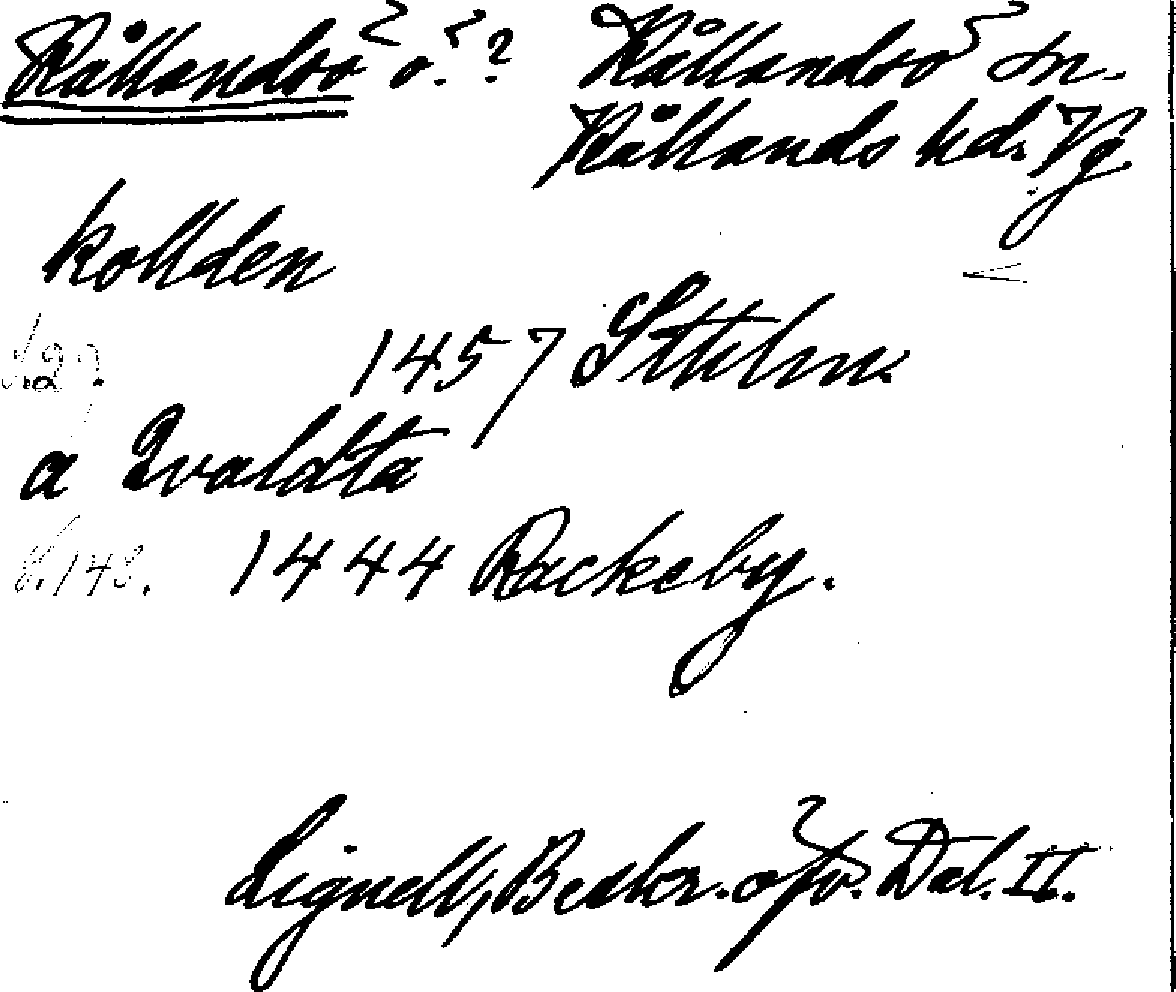 Kållandsö ö.? Kållandsö sn.
Kållands hd. Vg.
kollden
1457 Sthlm.
a Qvaldta
s. 148. 1444 Rackeby.
Lignell, Beskr. öfv. Dal. II.